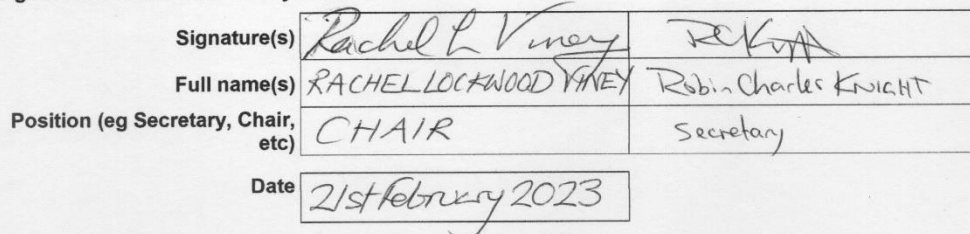 Signature(s) Rachel L Viney RCKnight
Full name(s) RACHEL LOCKWOOD VINEY Robin Charles KNIGHT
Position (eg Secretary, Chair, etc) CHAIR Secretary
Date 21st February 2023